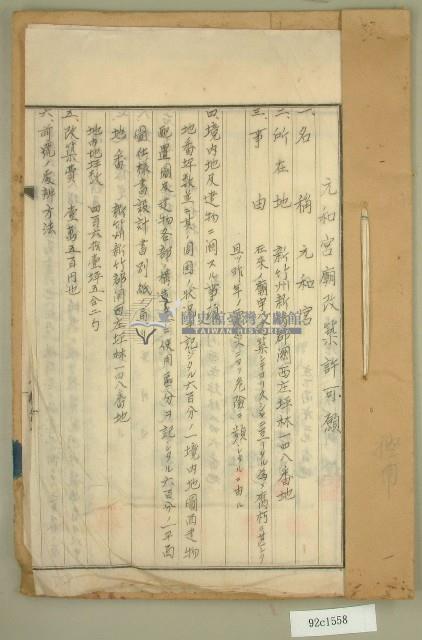 元和宮廟改築許可願
一、名稱 元和宮
二、所在地 新竹州新竹郡關西庄坪林一四八番地
三、事由 在来ノ廟宇ハ建築シテヨリ久シキニ亘リタル為メ腐朽甚シク
且ツ昨年ノ震災ニヨリ危險ニ頻シタルニ由ル
四、境内地及建物ニ關スル事項
地番坪數並ニ其ノ周圍ノ状況ヲ記シタル六百分ノ一境内地圖面建物
配置圖及建物各部構造 使用區分ヲ記シタル六百分ノ一平面
圖仕様書設計書別紙ノ通
地番 新竹州新竹郡關西庄坪林一四八番地
地市地坪數 四百六拾壹坪五合二勺
五、改築費 壹萬五百円也
六、前號ノ處辨方法
國史館臺灣文獻館
TAIWAN HISTORICA
92c1558